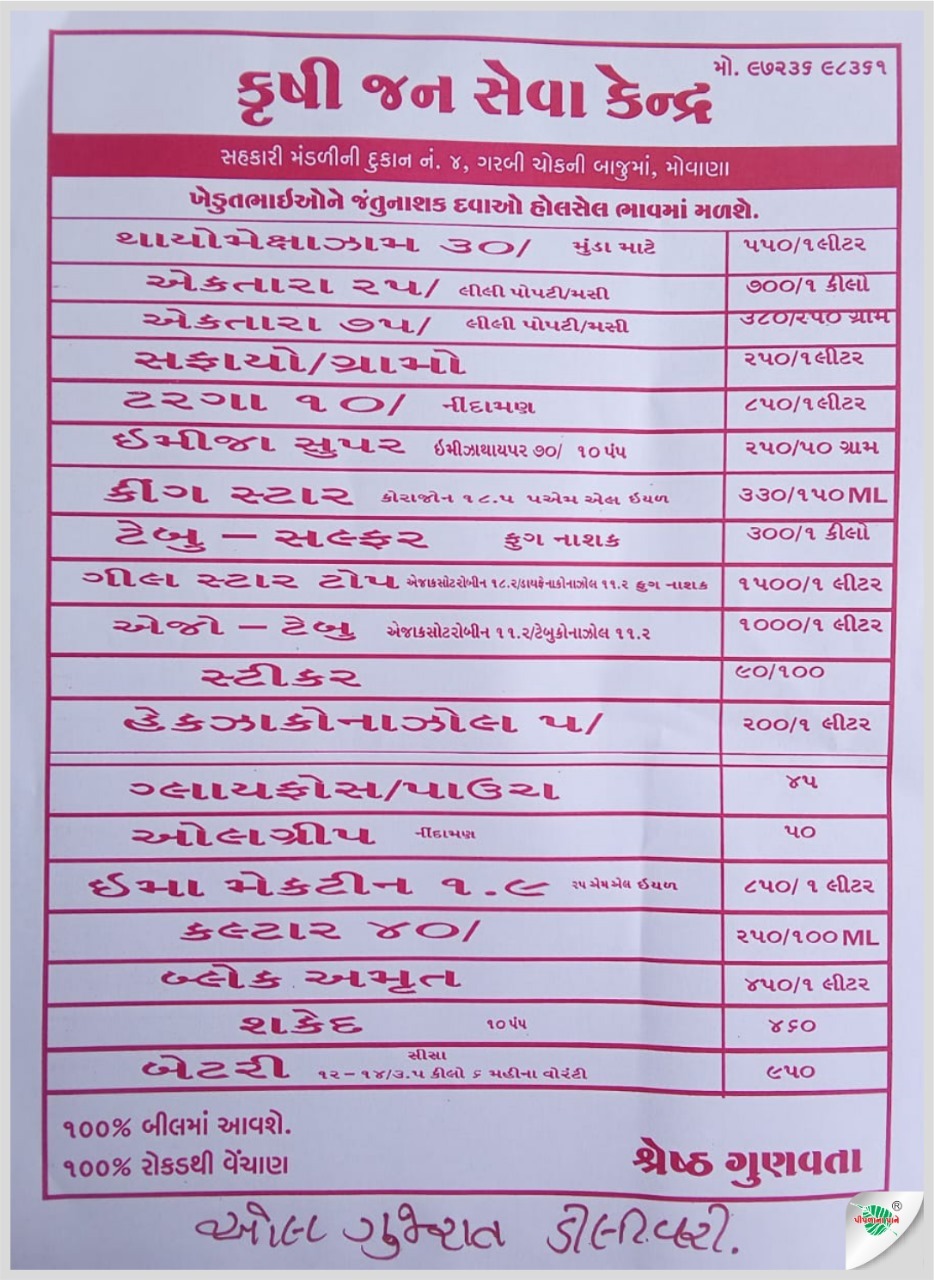 મો. ૯૭૨૩૬ ૯૮૩૬૧
કૃષી જન સેવા કેન્દ્ર
સહકારી મંડળીની દુકાન નં. ૪, ગરબી ચોકની બાજુમાં, મોવાણા
ખેડુતભાઇઓને જંતુનાશક દવાઓ હોલસેલ ભાવમાં મળશે.
થાયોમેક્ષાઝામ ૩૦/ મુંડા માટે ૫૫૦/૧લીટર
એકતારા ૨૫/ લીલી પોપટી/મસી ૭૦૦/૧ કીલો
એકતારા ૭૫/ લીલી પોપટી/મસી ૩૮૦/૨૫૦ ગ્રામ
સફાયો/ગ્રામો ૨૫૦/૧લીટર
ટરગા ૧૦/ નીંદામણ ૮૫૦/૧લીટર
ઈમીજા સુપર ઇમીઝાથાયપર ૭૦/ ૧૦ પંપ ૨૫૦/૫૦ ગ્રામ
કીંગ સ્ટાર કોરાજોન ૧૮.૫ પએમ એલ ઇયળ ૩૩૦/૧૫૦ ML
ટેબુ – સલ્ફર ફુગ નાશક ૩૦૦/૧ કીલો
ગીલ સ્ટાર ટોપ એજાકસોટરોબીન ૧૮.૨/ડાયફેનાકોનાઝોલ ૧૧.૨ ફુગ નાશક ૧૫૦૦/૧ લીટર
એજો – ટેબુ એજાકસોટરોબીન ૧૧.૨/ટેબુકોનાઝોલ ૧૧.૨ ૧૦૦૦/૧ લીટર
સ્ટીકર ૯૦/૧૦૦
હેકઝાકોનાઝોલ ૫/ ૨૦૦/૧ લીટર
ગ્લાયફોસ/પાઉચ ૪૫
ઓલગ્રીપ નીંદામણ ૫૦
ઈમા મેકટીન ૧.૯ ૨૫ એમ એલ ઇયળ ૮૫૦/ ૧ લીટર
કલ્ટાર ૪૦/ ૨૫૦/૧૦૦ ML
બ્લેક અમૃત ૪૫૦/૧ લીટર
શકેદ ૧૦ પંપ ૪૬૦
સીસા
બેટરી ૧૨ – ૧૪/૩.૫ કીલો ૬ મહીના વોરંટી ૯૫૦
૧૦૦% બીલમાં આવશે.
૧૦૦% રોકડથી વેંચાણ
શ્રેષ્ઠ ગુણવતા
ઓલ ગુજરાત ડીલીવરી.
પીપળાનાં પાને ®